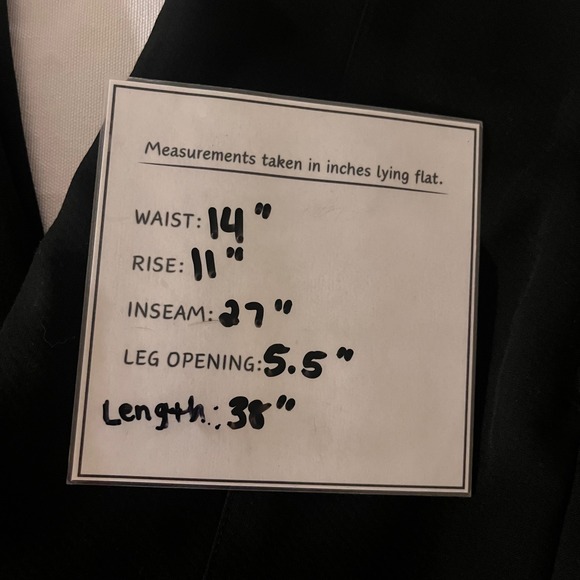 Measurements taken in inches lying flat.
WAIST: 14"
RISE: 11"
INSEAM: 27"
LEG OPENING: 5.5"
Length: 38"